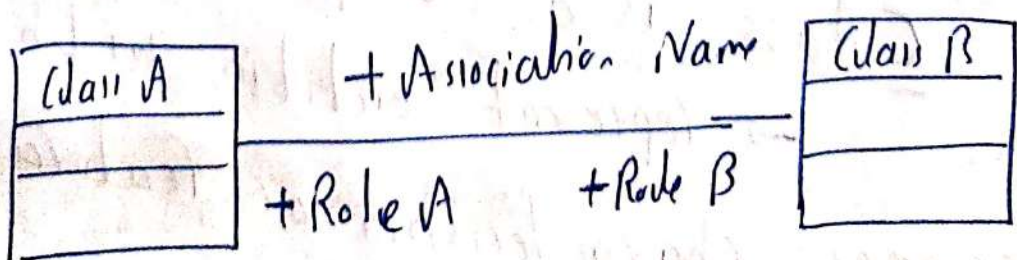 Class A
+ Association Name
Class B
+Role A
+Role B